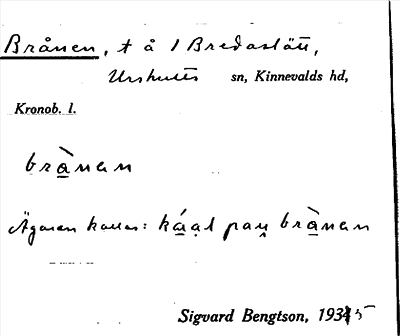 Brånen, t å / Bredaslätt,
Urshults sn, Kinnevalds hd,
Kronob. l.
brànan
Ägaren kallas: káal pau brànan
Sigvard Bengtson, 1935